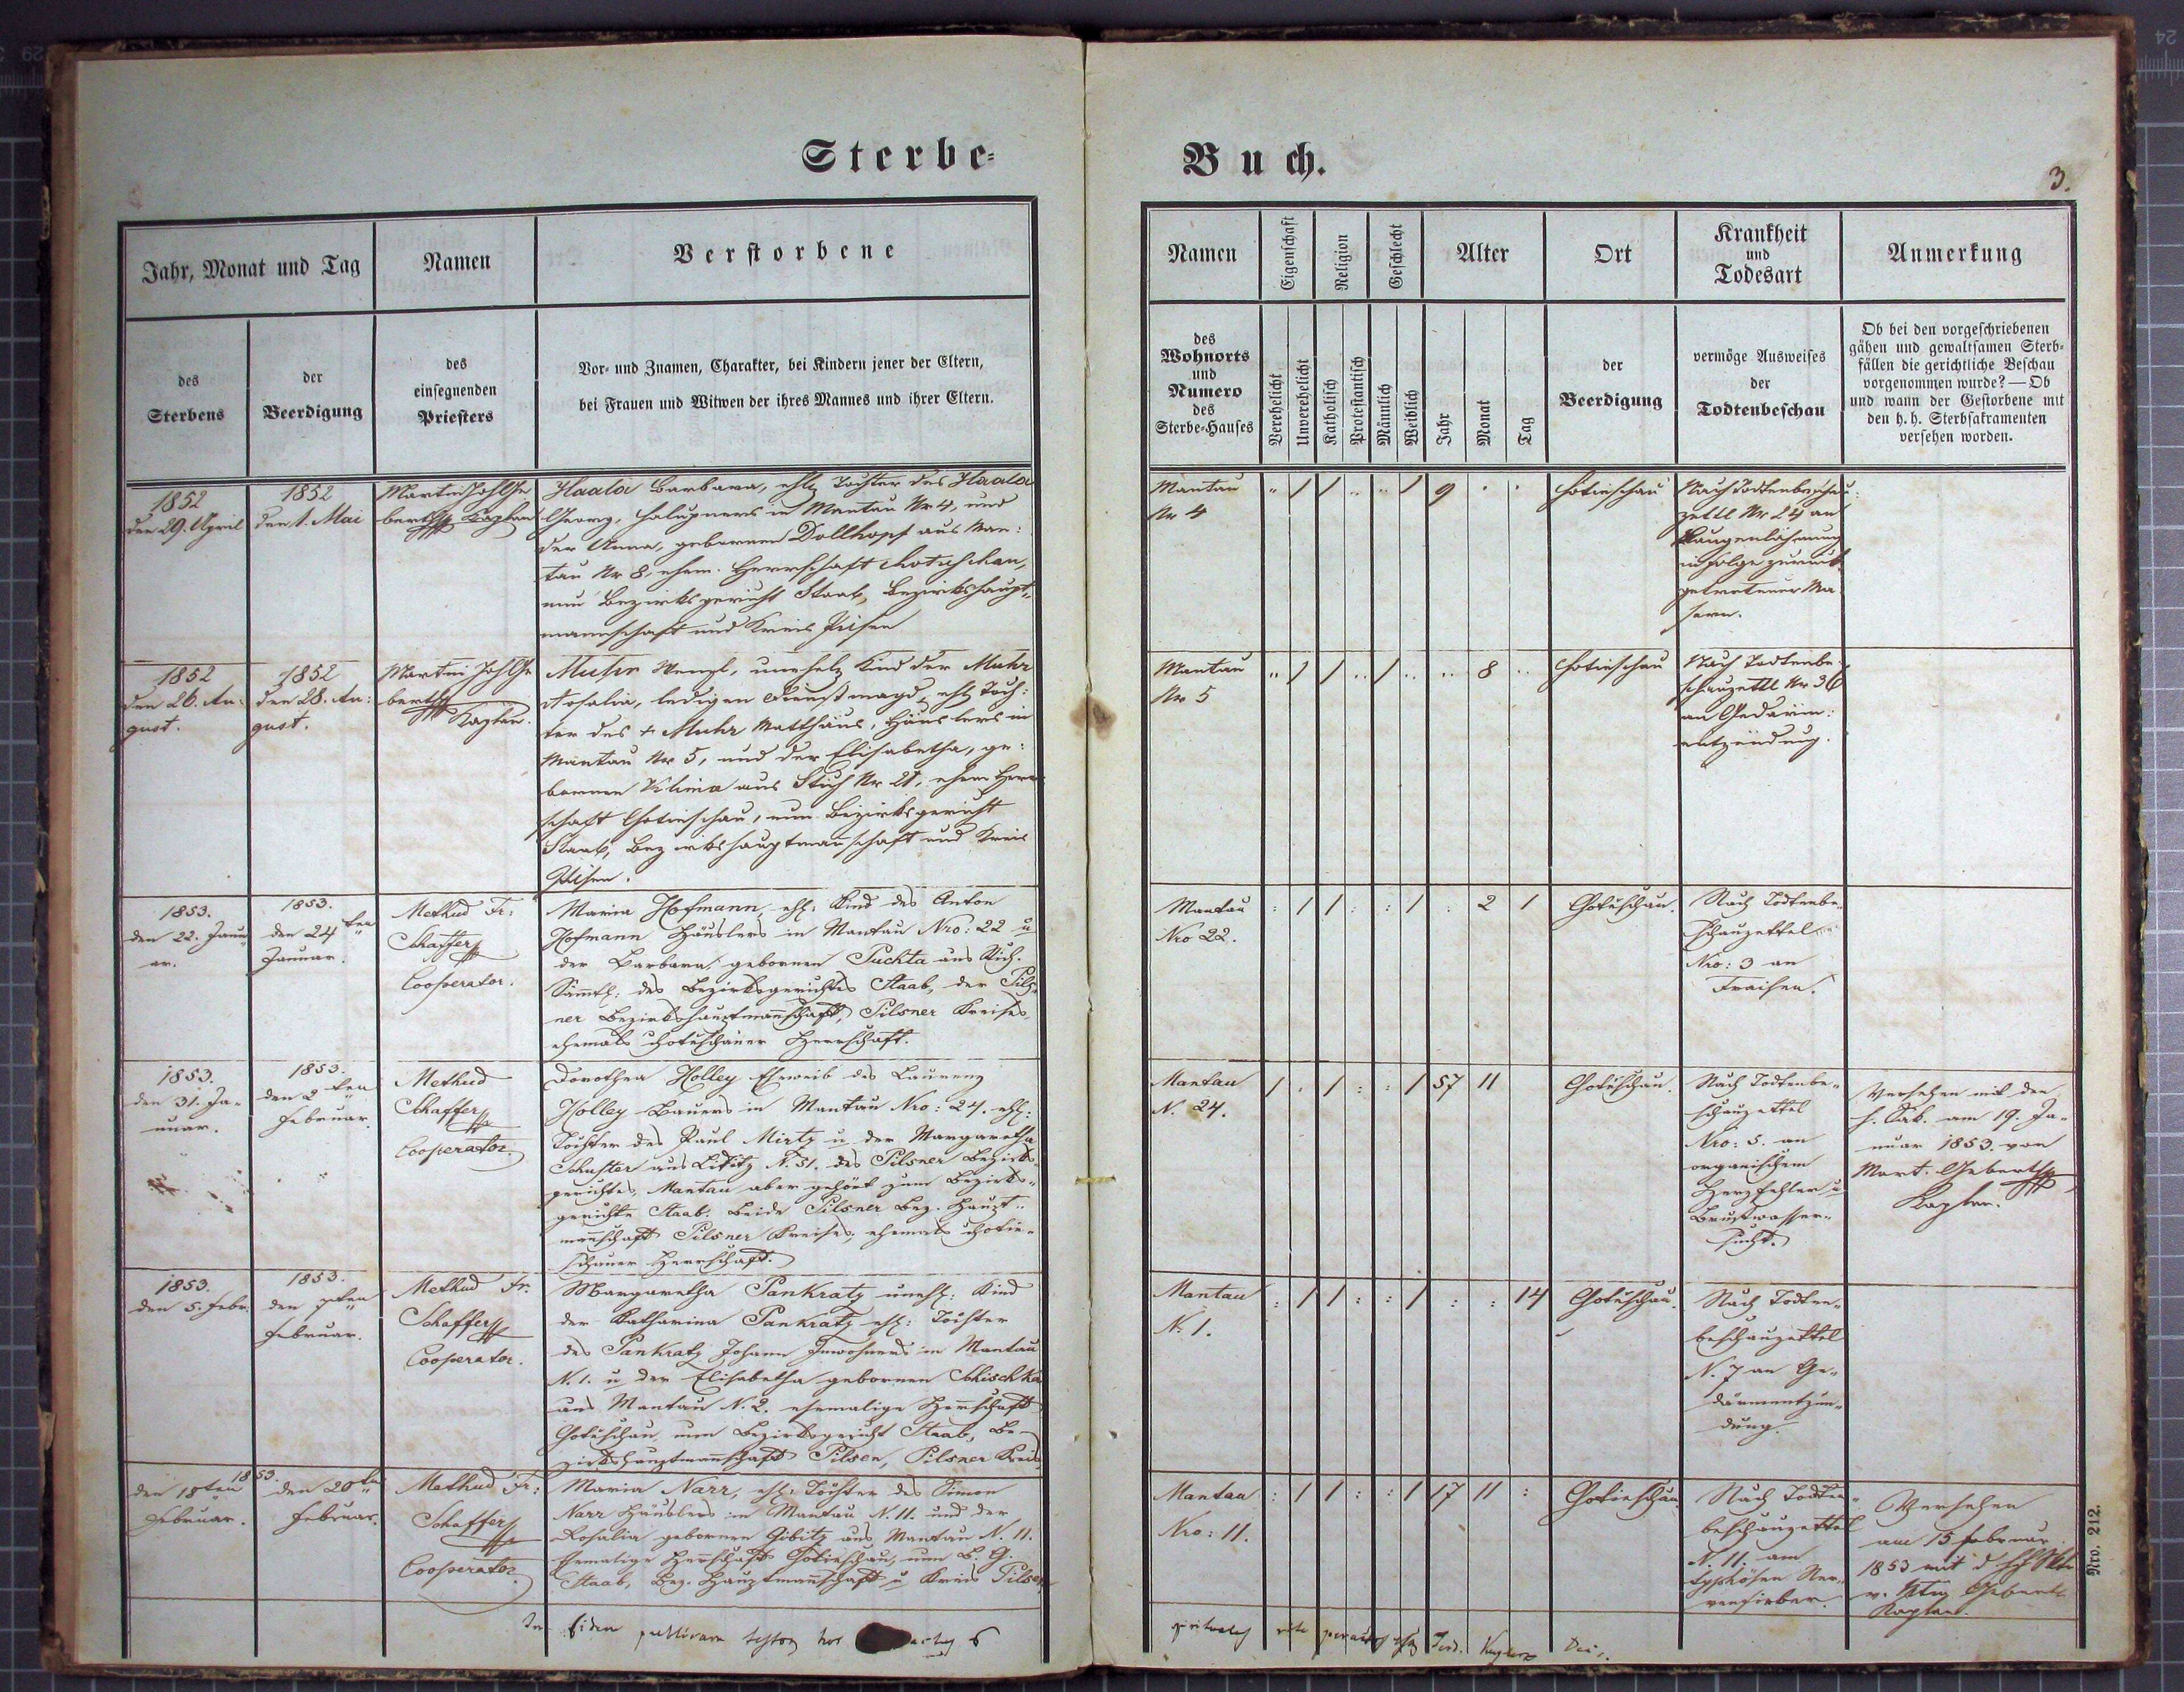 Sterbe-
Buch.
3.
Jahr, Monat und Tag
Namen
Verstorbene
des
Sterbens
der
Beerdigung
des
einsegnenden
Priesters
Vor- und Znamen, Charakter, bei Kindern jener der Eltern,
bei Frauen und Witwen der ihres Mannes und ihrer Eltern.
Namen
Eigenschaft
Religion
Geschlecht
Alter
Ort
Krankheit
und
Todesart
Anmerkung
des
Wohnorts
und
Numero
des
Sterbe-Hauses
Verehelicht
Unverehelicht
Katholisch
Protestantisch
Männlich
Weiblich
Jahr
Monat
Tag
der
Beerdigung
vermöge Ausweises
der
Todtenbeschau
Ob bei den vorgeschriebenen
gähen und gewaltsamen Sterb-
fällen die gerichtliche Beschau
vorgenommen wurde? — Ob
und wann der Gestorbene mit
den h. h. Sterbsakramenten
versehen worden.
1852
den 29. April
1852
den 1. Mai
Martin
Kaplan
Haala Barbara, ehl. Tochter des Haala
Georg, Chalupners in Mantau Nr 4, und
der Anna, gebornen Dollhopf aus Man:
tau Nr 8, ehem. Herrschaft Chotieschau,
nun Bezirksgericht Staab, Bezirkshaupt-
mannschaft und Kreis Pilsen
Mantau
Nr 4
/ / / 9
Chotieschau
Nach Todtenbeschau:
zettl Nr 24 an
Lungenlähmung
in Folge zurück
getretener Ma
sern.
1852
den 26. Au:
gust.
1852
den 28. Au:
gust.
Martin
Kaplan.
Muhr Wenzl, unehel. Kind der Muhr
Rosalia, ledigen Dienstmagd, ehl. Toch:
ter des + Muhr Matthäus, Häuslers in
Mantau Nr 5, und der Elisabetha, ge:
bornen Klima aus Stich Nr 21, ehem Herr
schaft Chotieschau, nun Bezirksgericht
Staab, Bezirkshauptmannschaft und Kreis
Pilsen.
Mantau
Nr 5
/ / / 8
Chotieschau
Nach Todtenbe:
schauzettl Nr 36
an Gedärm:
entzündung.
1853.
den 22. Janu
ar.
1853.
den 24ten
Januar.
Methud Fr:
Schaffer
Cooperator.
Maria Hofmann, ehl: Kind des Anton
Hofmann Häuslers in Mantau Nro: 22 u
der Barbara, gebornen Puchta aus
Sämmtl: des Bezirksgerichtes Staab, der Pils
ner Bezirkshauptmannschaft, Pilsner Kreises,
ehemals Chotieschauer Herrschaft.
Mantau
Nro 22.
/ / / 2 1
Chotieschau.
Nach Todtenbe:
schauzettel
Nro: 3 an
Fraisen.
1853.
den 31. Ja-
nuar.
1853.
den 2ten
Februar.
Methud
Schaffer
Cooperator.
Dorothea Holley Eheweib des Laurenz
Holley Bauers in Mantau Nro: 24. ehl:
Tochter des Paul Mirtz u. der Margaretha
Schuster aus Lititz N. 51. des Pilsner Bezirks-
gerichtes, Mantau aber gehört zum Bezirks-
gerichte Staab: beide Pilsner Bez. Haupt-
mannschaft Pilsner Kreises, ehemals Chotie-
schauer Herrschaft.
Mantau
N. 24.
/ / / 57 11
Chotieschau.
Nach Todtenbe-
schauzettel
Nro: 5. an
organischem
Herzfehler u.
Brustwasser-
sucht.
Versehen mit den
h. Sak. am 19. Ja-
nuar 1853. von
Mart. Gebert
Kaplan.
1853.
den 5. Febr.
1853.
den 7ten
Februar.
Methud Fr.
Schaffer
Cooperator.
Margaretha Pankratz unehl: Kind
der Katharina Pankratz ehl: Tochter
des Pankratz Johann Inwohners in Mantau
N. 1. u der Elisabetha gebornen Schischka
aus Mantau N. 2. ehemalige Herrschaft
Chotieschau nun Bezirksgericht Staab, Be-
zirkshauptmannschaft Pilsen, Pilsner Kreis
Mantau
N. 1.
/ / / 14
Chotieschau.
Nach Todten-
beschauzettel
N. 7 an Ge-
därmentzün-
dung.
1853.
den 18ten
Februar.
den 20ten
Februar.
Methud Fr:
Schaffer
Cooperator.
Maria Narr, ehl: Tochter des Simon
Narr Häuslers in Mantau N. 11. und der
Rosalia gebornen Gibitz aus Mantau N. 11.
Ehemalige Herrschaft Chotieschau, nun B. G.
Staab, Bez. Hauptmannschaft u Kreis Pilsen
Mantau
Nro: 11.
/ / / 17 11
Chotieschau
Nach Todten-
beschauzettel
N. 11. am
typhösen Ner-
venfieber.
Versehen
am 15 Februar
1853 mit d
v. Gebert
Kaplan.
In fidem publicam testor hos actus
rite
Nro. 212.